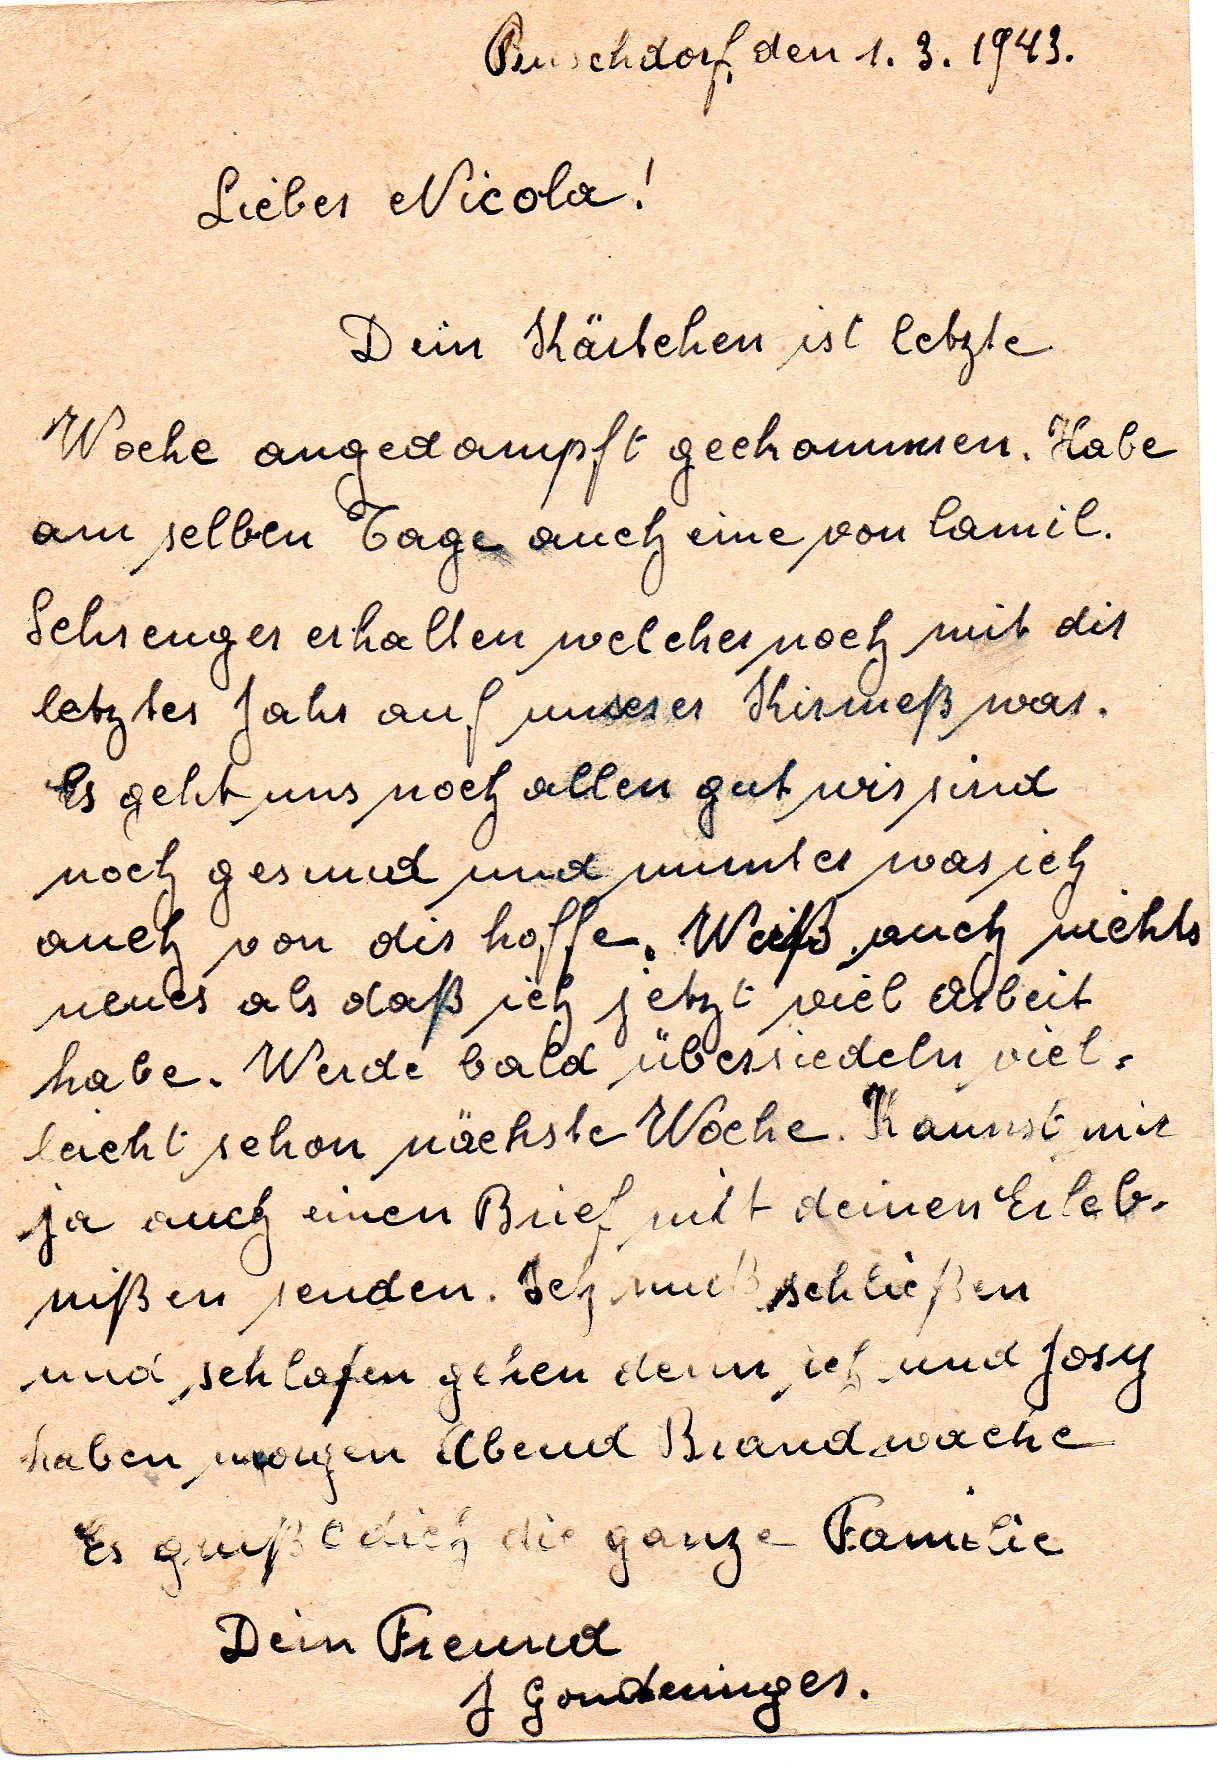 Buschdorf, den 1. 3. 1943.
Lieber Nicola!
Dein Kärtchen ist letzte
Woche angedampft gekommen. Habe
am selben Tage auch eine von Camil.
Schrenger erhalten welcher noch mit dir
letztes Jahr auf unserer Kirmeß war.
Es geht uns noch allen gut wir sind
noch gesund und munter was ich
auch von dir hoffe. Weiß auch nichts
neues als daß ich jetzt viel Arbeit
habe. Werde bald übersiedeln viel-
leicht schon nächste Woche. Kannst mir
ja auch einen Brief mit deinen Erleb-
nißen senden. Ich muß schließen
und schlafen gehen denn ich und Josy
haben morgen Abend Brandwache
Es grüßt dich die ganze Familie
Dein Freund
J Gonderinger.